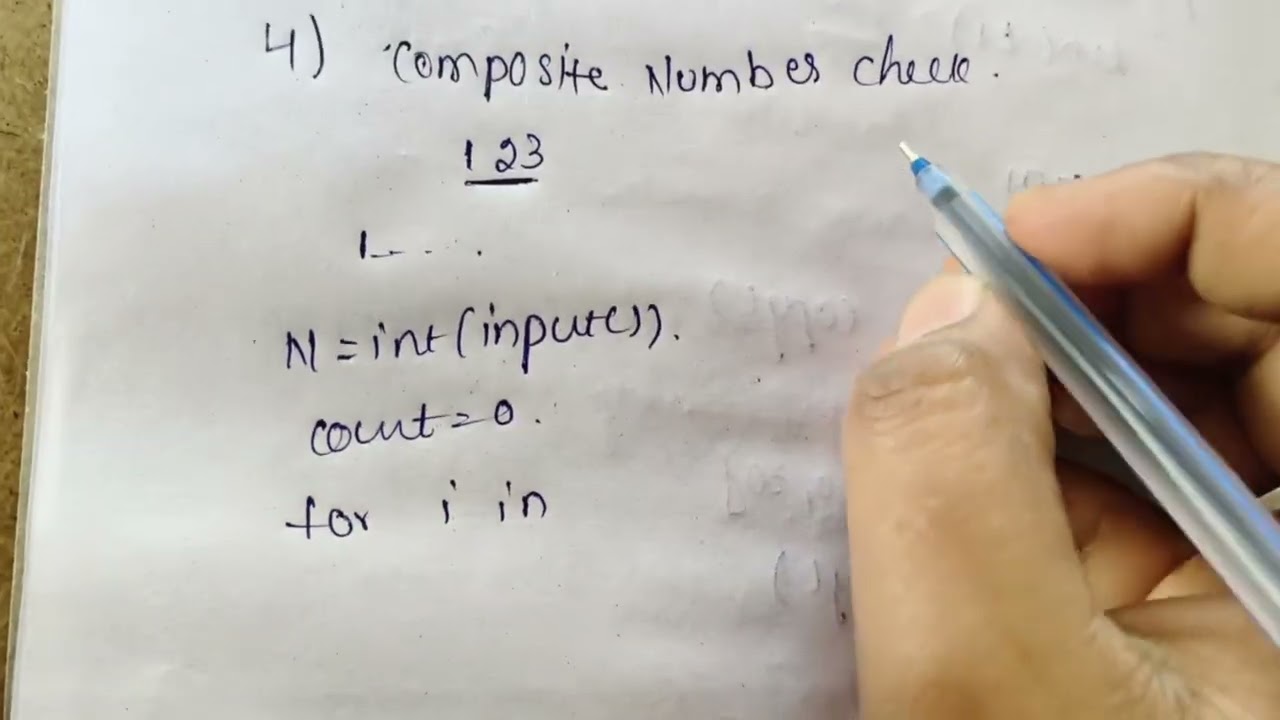 4) Composite Number check.
123
1--- .
N = int(input()).
count = 0.
for i in